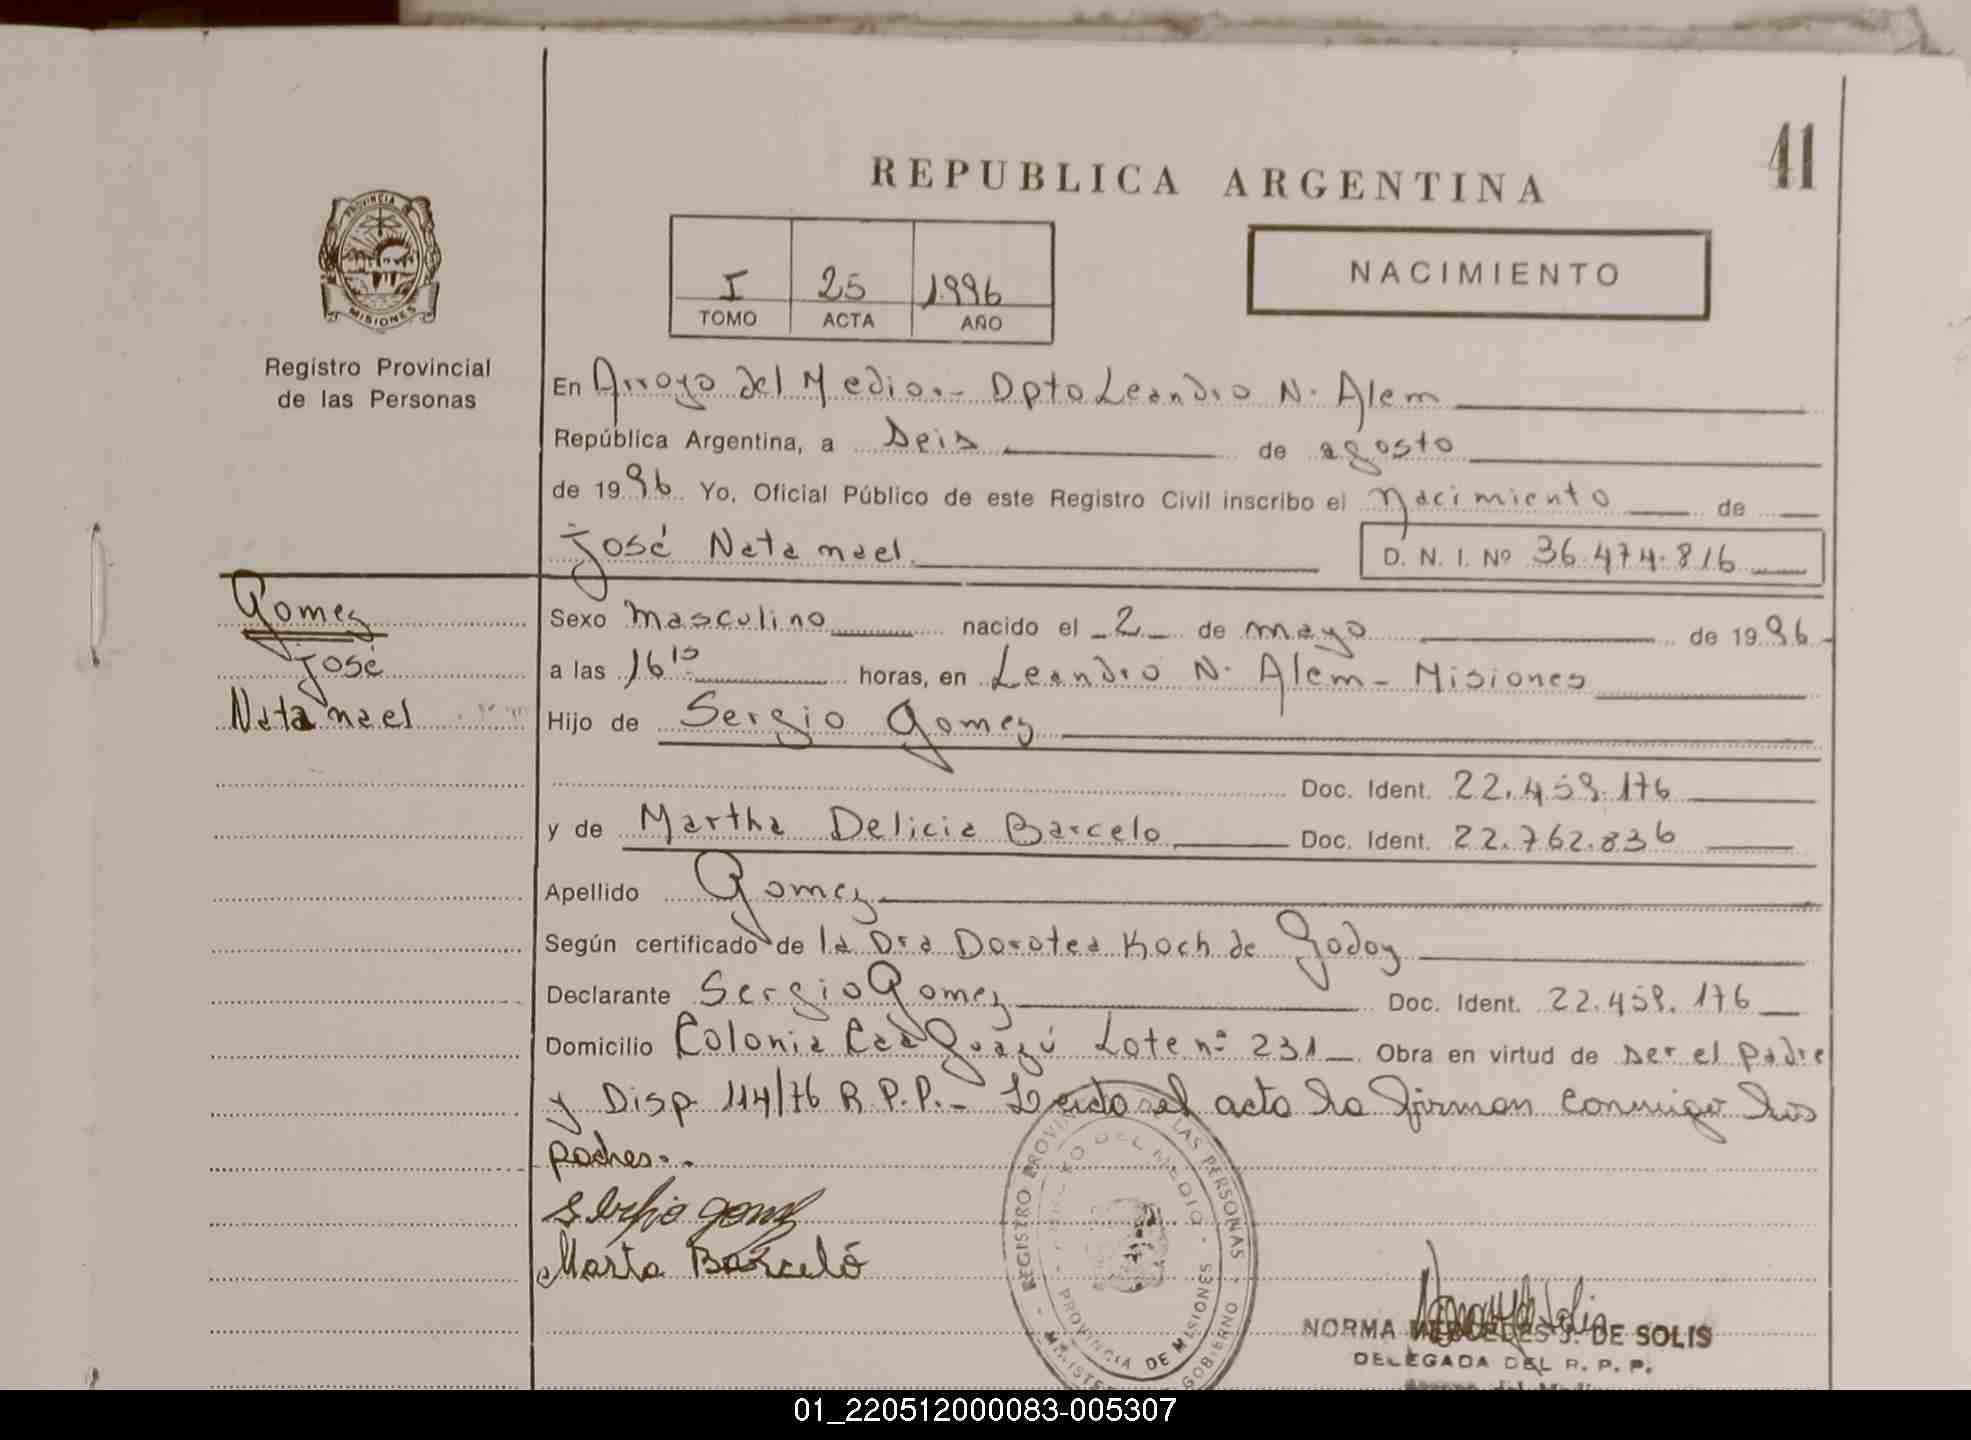 41
REPUBLICA ARGENTINA
PROVINCIA
MISIONES
Registro Provincial
de las Personas
I 25 1996
TOMO ACTA AÑO
NACIMIENTO
En Arroyo del Medio.- Dpto Leandro N. Alem
República Argentina, a seis de agosto
de 1996 Yo, Oficial Público de este Registro Civil inscribo el nacimiento de
José Natanael D. N. I. Nº 36.474.816
Gomez
José
Natanael
Sexo masculino nacido el 2 de mayo de 1996
a las 16 15 horas, en Leandro N. Alem - Misiones
Hijo de Sergio Gomez
Doc. Ident. 22.459.176
y de Martha Delicia Barcelo Doc. Ident. 22.762.836
Apellido Gomez
Según certificado de la Dra Dorotea Koch de Godoy
Declarante Sergio Gomez Doc. Ident. 22.459.176
Domicilio Colonia Caá Guazú Lote nº 231 Obra en virtud de ser el padre
y Disp. 114/76 R.P.P.- Leido el acta la firman conmigo los
padres..
Sergio Gomez
Marta Barceló
REGISTRO PROVINCIAL LAS PERSONAS
ARROYO DEL MEDIO
PROVINCIA DE MISIONES
GOBIERNO
NORMA MERCEDES S. DE SOLIS
DELEGADA DEL R. P. P.
01_220512000083-005307